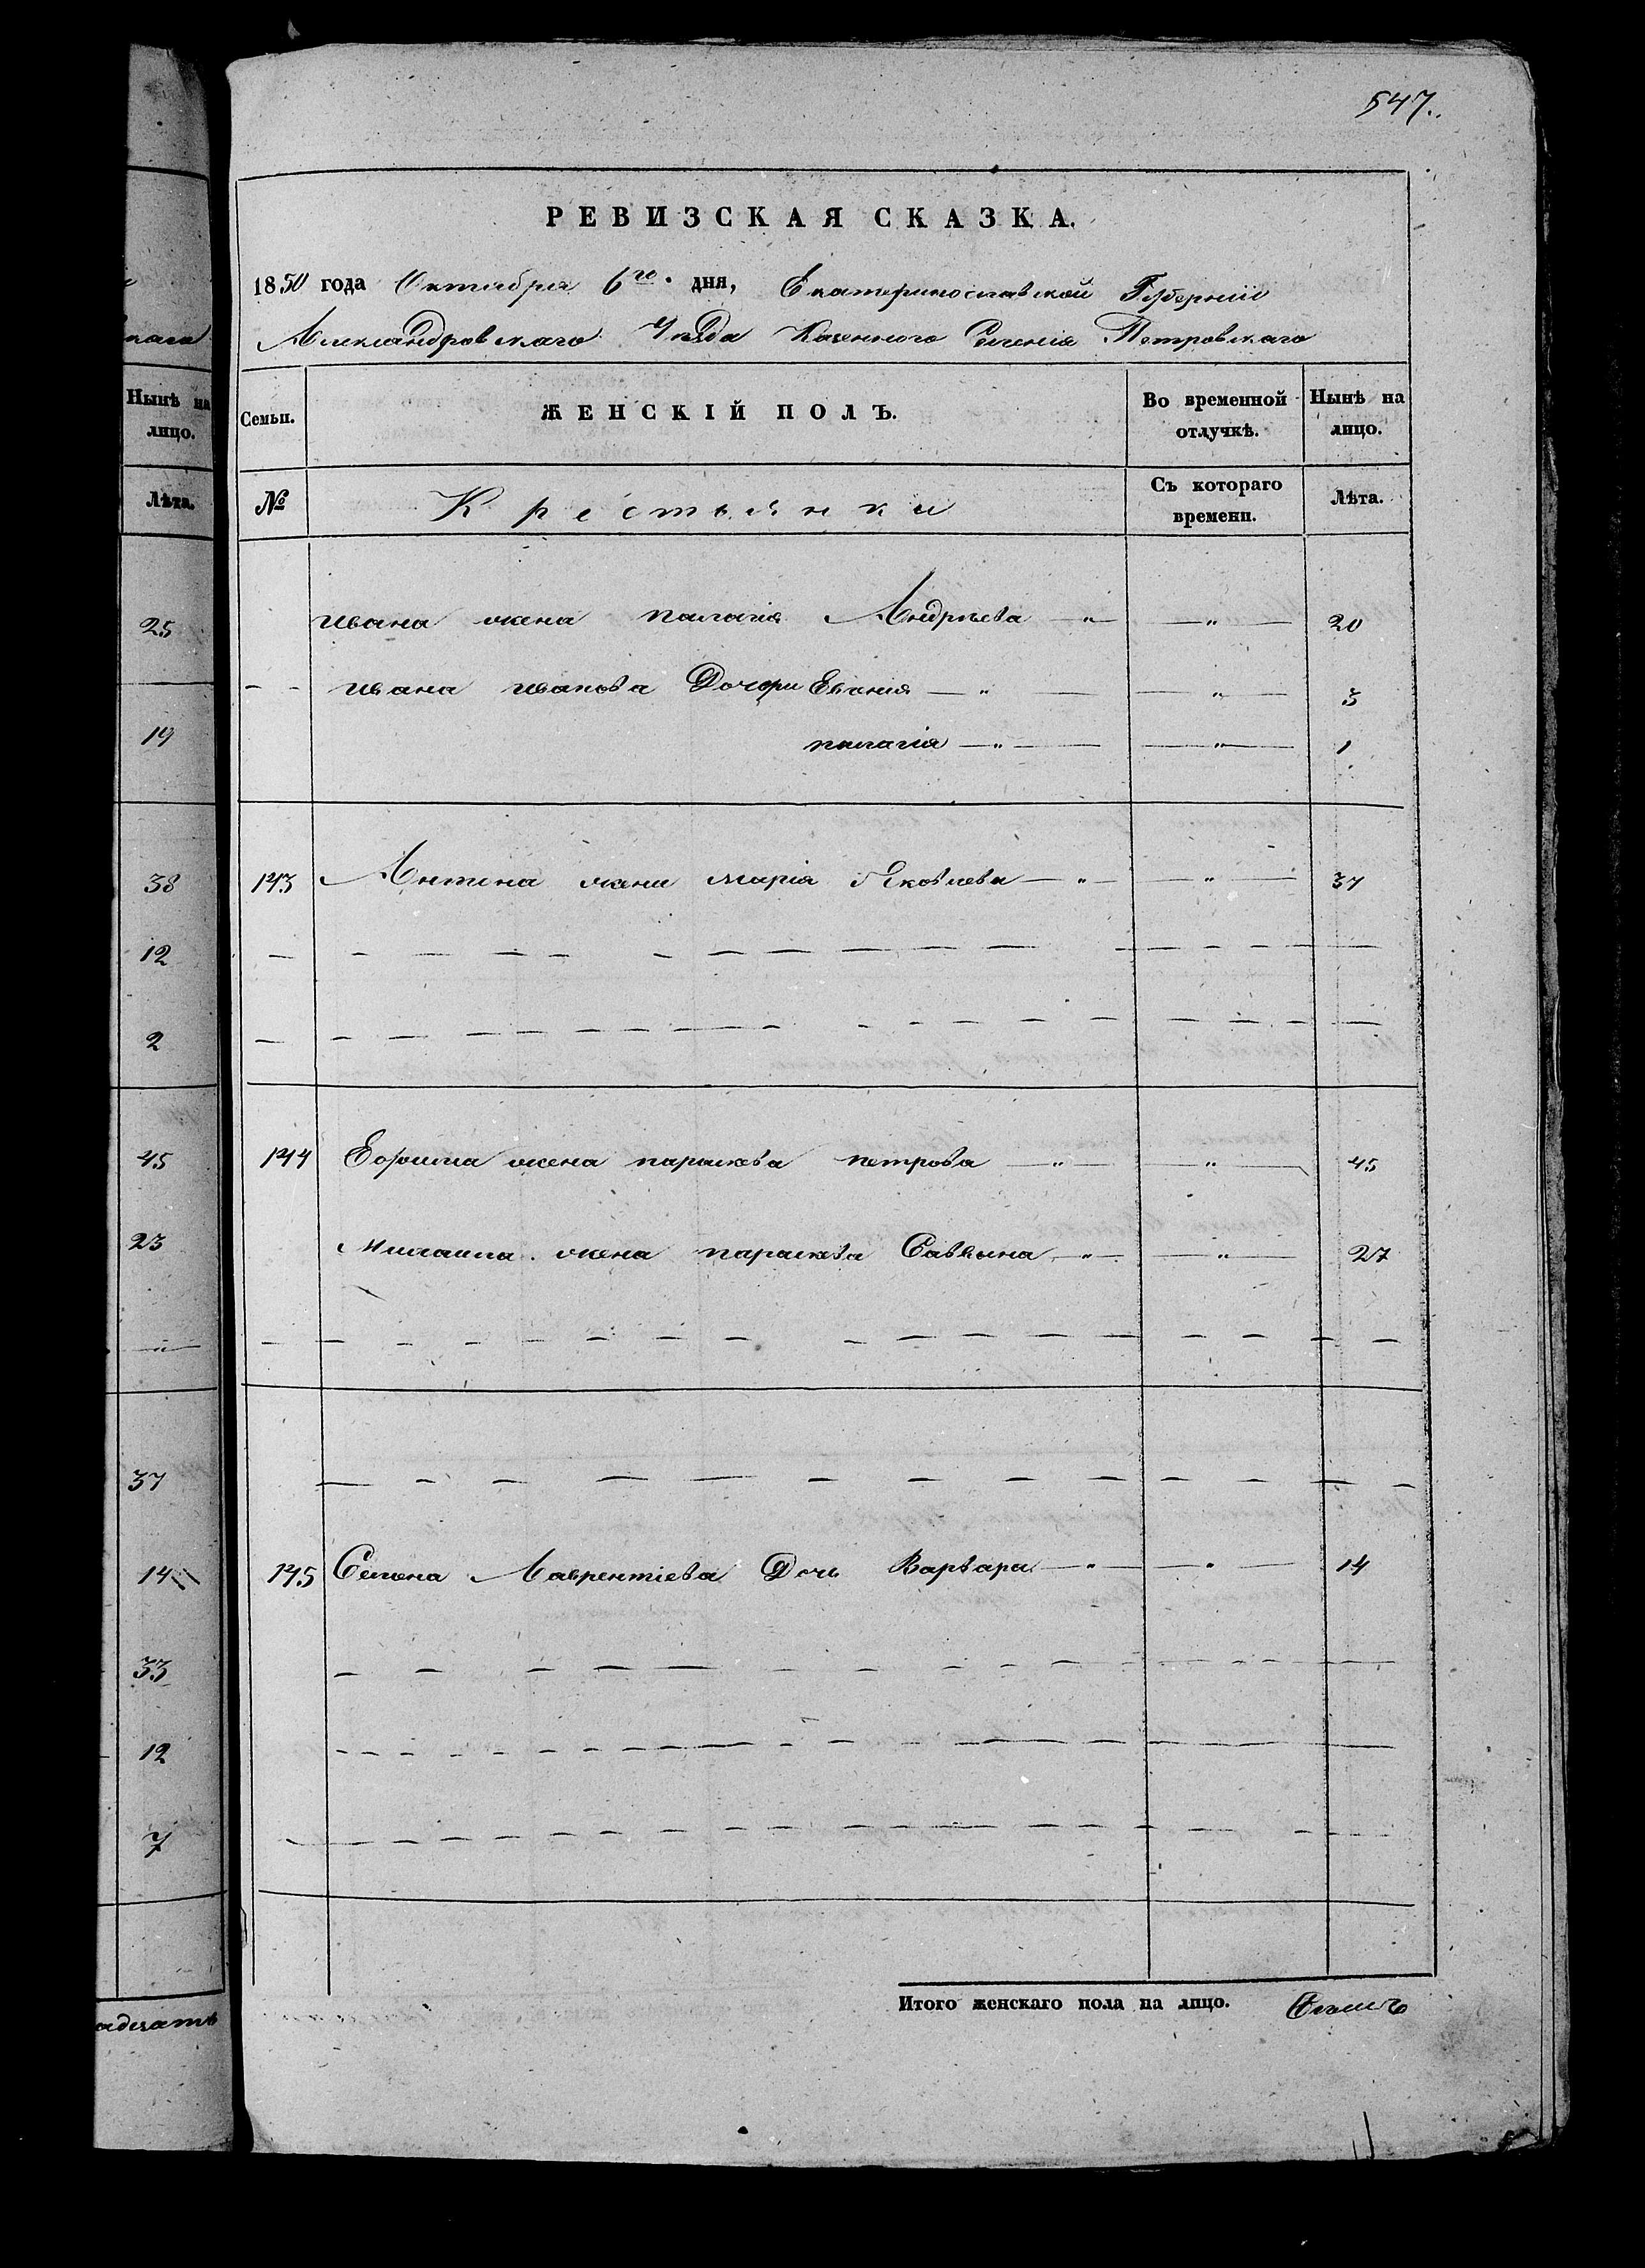 547.
РЕВИЗСКАЯ СКАЗКА.
1850 года Октября 6го дня, Екатеринославской Губерніи
Александровскаго Уѣзда Казенного Селенія Петровскаго
наго
Нынѣ на лицо.
Лѣта.
Семьи.
ЖЕНСКІЙ ПОЛЪ.
Во временной отлучкѣ.
Нынѣ на лицо.
№
Крестьянки
Съ котораго времени.
Лѣта.
25
Ивана жена палагія Андрѣева — " — — " — 20
— — Ивана иванова Дочери Евгенія — " — — " — 3
19
палагія — " — — " — 1
38
143 Антина жена марія Яковлева — " — — " — 37
12
2
45
144 Ефима жена параскѣва петрова — " — — " — 45
23
Михаила жена параскѣва Саввина — " — — " — 27
— " —
37
14
145 Семена Лаврентіева Дочь Варвара — " — — " — 14
33
12
7
Итого женскаго пола на лицо. Семь
адцать